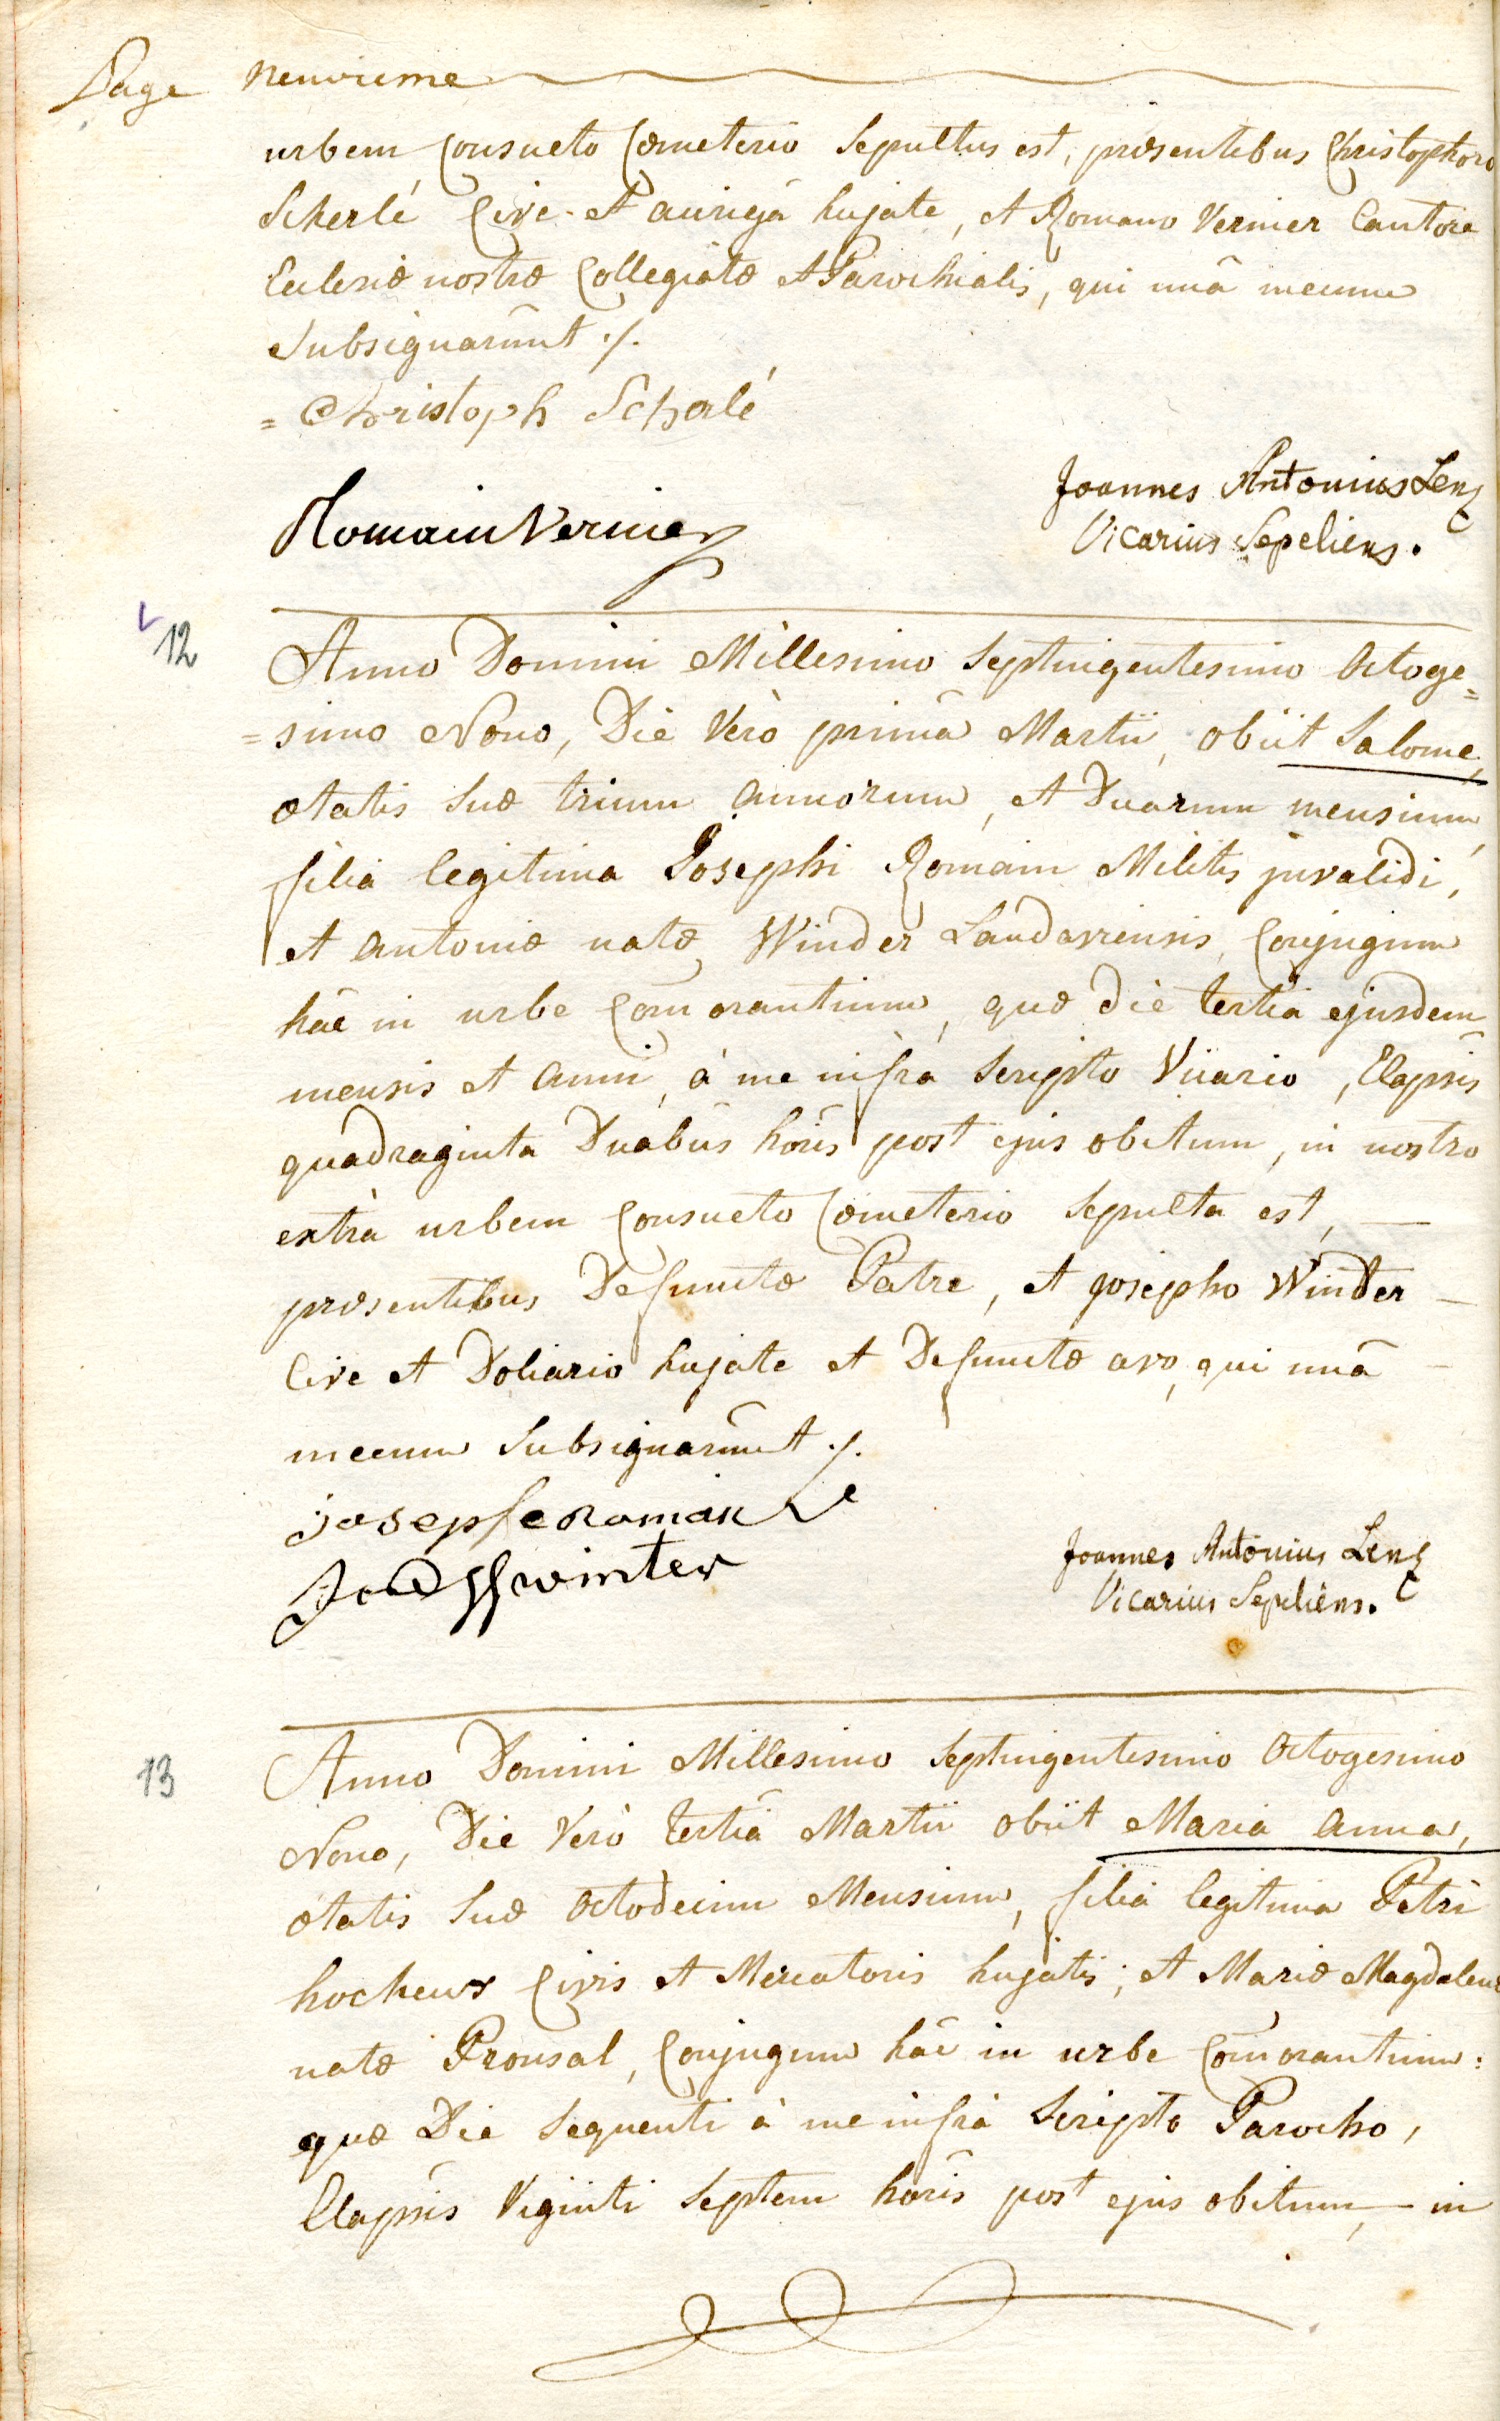 Page neuvieme
urbem Consueto Cœmeterio Sepultus est, præsentibus Christophoro
Scherlé Cive et aurigâ hujate, et Romano Vernier Cantore
Eclesiæ nostræ Collegiatæ et Parochialis, qui unâ mecum
Subsignarûnt ./.
= Christoph Scherlé
Joannes Antonius Lenz
Romain Vernier
Vicarius Sepeliens.
12
Anno Domini Millesimo Septingentesimo Octoge=
=simo Nono, Die Verò primâ Martii, obiit Salome,
ætatis suæ trium annorum, et Duarum mensium,
filia legitima Josephi Romain Militis invalidi,
et antoniæ natæ Winder Landaviensis, Conjugum
hâc in urbe Com̃orantium, quæ die tertiâ ejusdem
mensis et anni, à me infrà scripto Vicario, Elapsis
quadraginta Duabus horis post ejus obitum, in nostro
extrà urbem Consueto Cœmeterio Sepulta est,
præsentibus Defunctæ Patre, et josepho Winder
Cive et Doliario hujate et Defunctæ avo, qui unâ
mecum Subsignarûnt ./.
josepfe Romain
Joannes Antonius Lenz
winter
Vicarius Sepeliens.
13
Anno Domini Millesimo Septingentesimo Octogesimo
Nono, Die Verò tertiâ Martii obiit Maria anna,
ætatis suæ Octodecim Mensium, filia legitima Petri
hocheux Civis et Mercatoris hujatis; et Mariæ Magdalenæ
natæ Prousal, Conjugum hâc in urbe Com̃orantium:
quæ Die Sequenti à me infrà Scripto Parocho,
Elapsis Viginti Septem horis post ejus obitum, in